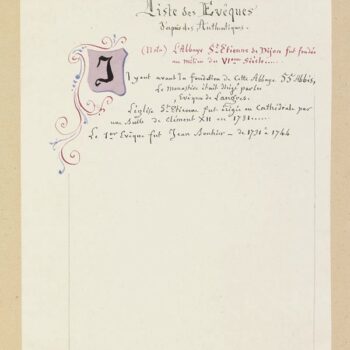 Liste des Evêques
d'après des Authentiques.
(Nota) L'Abbaye St. Etienne de Dijon fut fondée
au milieu du VIème Siècle.....
Iyant avant la fondation de cette Abbaye 55 Abbés,
Le monastère était dirigé par les
Evêques de Langres.
L'église St. Etienne fut érigée en Cathédrale par
une Bulle de Clément XII en 1731.....
Le 1er Evêque fut Jean Bouhier - de 1731 à 1744